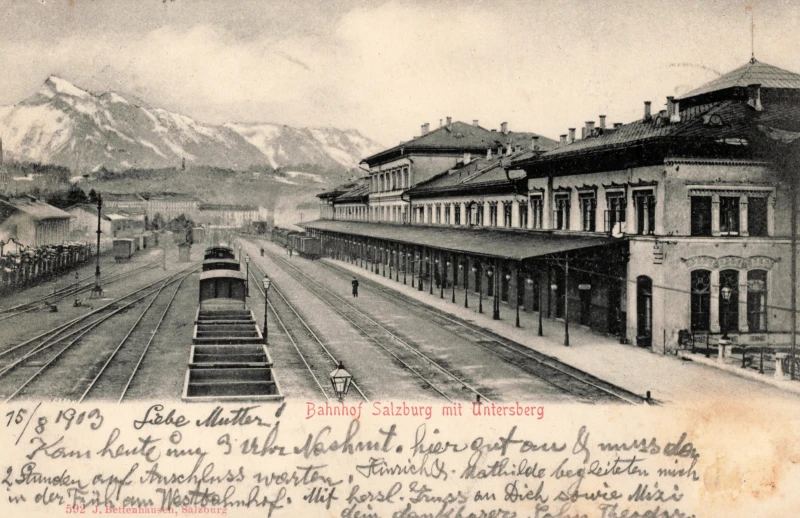 Bahnhof Salzburg mit Untersberg
15/8 1903 Liebe Mutter!
Kam heute um 3 Uhr Nachmt. hier gut an & muss da
2 Stunden auf Anschluss warten. Hinrich &. Mathilde begleiteten mich
in der Früh am Westbahnhof. Mit herzl. Gruss an Dich sowie Mizi
dein dankbarer Sohn Theodor
592 J. Bettenhausen, Salzburg